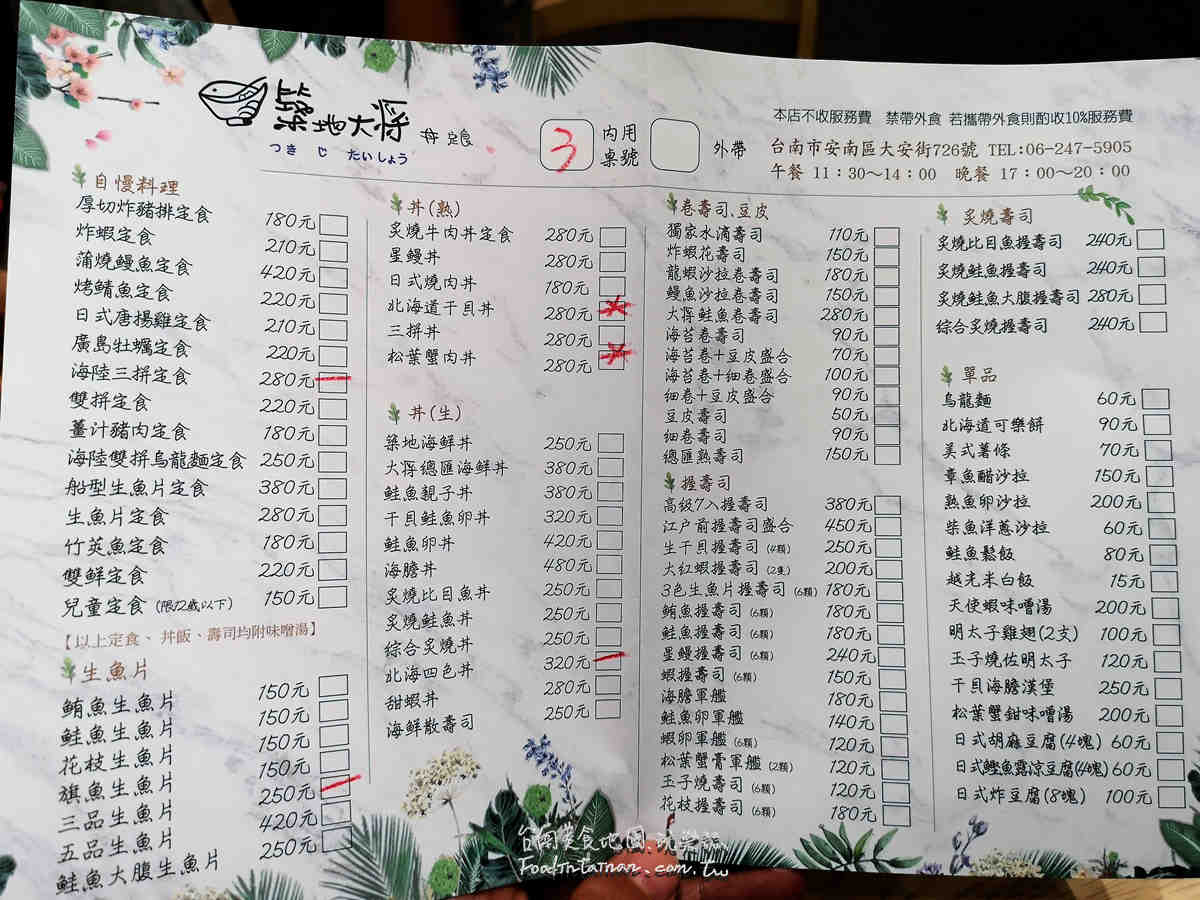 築地大将 丼 定食
つきじ たいしょう
3 內用桌號 外帶
本店不收服務費 禁帶外食 若攜帶外食則酌收10%服務費
台南市安南區大安街726號 TEL:06-247-5905
午餐 11:30～14:00 晚餐 17:00～20:00
自慢料理
厚切炸豬排定食 180元
炸蝦定食 210元
蒲燒鰻魚定食 420元
烤鯖魚定食 220元
日式唐揚雞定食 210元
廣島牡蠣定食 220元
海陸三拼定食 280元
雙拼定食 220元
薑汁豬肉定食 180元
海陸雙拼烏龍麵定食 250元
船型生魚片定食 380元
生魚片定食 280元
竹筴魚定食 180元
雙鮮定食 220元
兒童定食(限12歲以下) 150元
【以上定食、丼飯、壽司均附味噌湯】
生魚片
鮪魚生魚片 150元
鮭魚生魚片 150元
花枝生魚片 150元
旗魚生魚片 150元
三品生魚片 250元
五品生魚片 420元
鮭魚大腹生魚片 250元
丼(熟)
炙燒牛肉丼定食 280元
星鰻丼 280元
日式燒肉丼 180元
北海道干貝丼 280元
三拼丼 280元
松葉蟹肉丼 280元
丼(生)
築地海鮮丼 250元
大將總匯海鮮丼 380元
鮭魚親子丼 380元
干貝鮭魚卵丼 320元
鮭魚卵丼 420元
海膽丼 480元
炙燒比目魚丼 250元
炙燒鮭魚丼 250元
綜合炙燒丼 250元
北海四色丼 320元
甜蝦丼 280元
海鮮散壽司 250元
卷壽司、豆皮
獨家水滴壽司 110元
炸蝦花壽司 150元
龍蝦沙拉卷壽司 180元
鰻魚沙拉卷壽司 150元
大將鮭魚卷壽司 280元
海苔卷壽司 90元
海苔卷+豆皮盛合 70元
海苔卷+細卷盛合 100元
細卷+豆皮盛合 90元
豆皮壽司 50元
細卷壽司 90元
總匯熟壽司 150元
握壽司
高級7入握壽司 380元
江戶前握壽司盛合 450元
生干貝握壽司(4顆) 250元
大紅蝦握壽司(2隻) 200元
3色生魚片握壽司(6顆) 180元
鮪魚握壽司(6顆) 180元
鮭魚握壽司(6顆) 180元
星鰻握壽司(6顆) 240元
蝦握壽司(6顆) 150元
海膽軍艦 180元
鮭魚卵軍艦 140元
蝦卵軍艦(6顆) 120元
松葉蟹膏軍艦(2顆) 120元
玉子燒壽司(6顆) 120元
花枝握壽司(6顆) 180元
炙燒壽司
炙燒比目魚握壽司 240元
炙燒鮭魚握壽司 240元
炙燒鮭魚大腹握壽司 280元
綜合炙燒握壽司 240元
單品
烏龍麵 60元
北海道可樂餅 90元
美式薯條 70元
章魚醋沙拉 150元
熟魚卵沙拉 200元
柴魚洋蔥沙拉 60元
鮭魚鬆飯 80元
越光米白飯 15元
天使蝦味噌湯 200元
明太子雞翅(2支) 100元
玉子燒佐明太子 120元
干貝海膽漢堡 250元
松葉蟹鉗味噌湯 200元
日式胡麻豆腐(4塊) 60元
日式鰹魚露涼豆腐(4塊) 60元
日式炸豆腐(8塊) 100元
台南美食地圖.玩樂誌
Foodintainan.com.tw